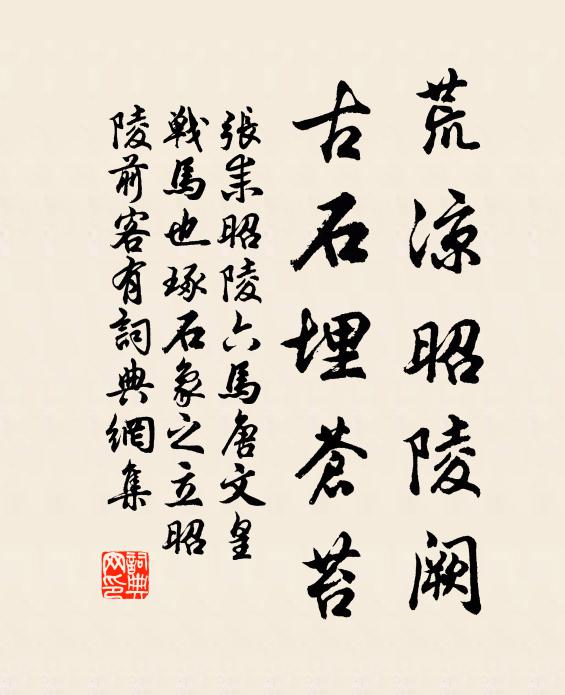 荒涼昭陵闕
古石埋蒼苔
張耒昭陵六馬唐文皇
戰馬也琢石象之立昭
陵前客有詞典網集
詞典網印